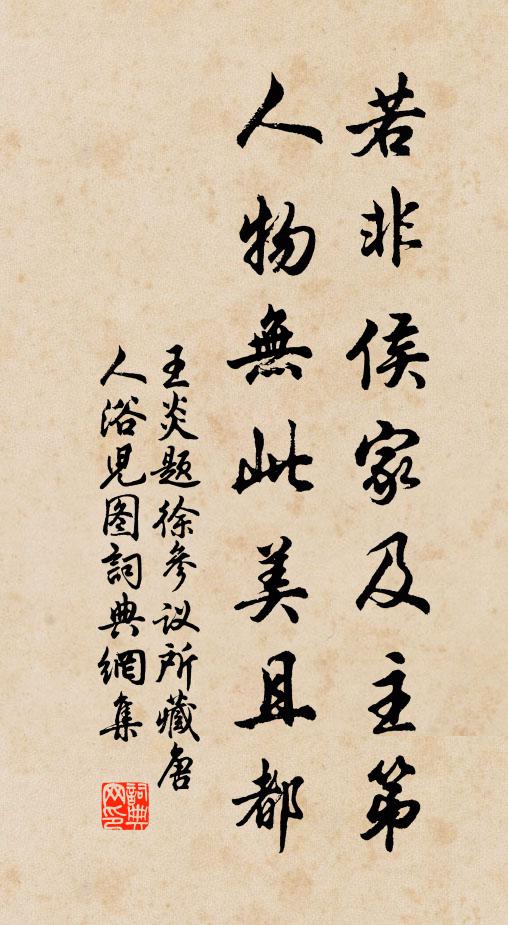 若非侯家及主第
人物無此美且都
王炎题徐参议所藏唐
人浴儿图詞典網集
詞典
网印